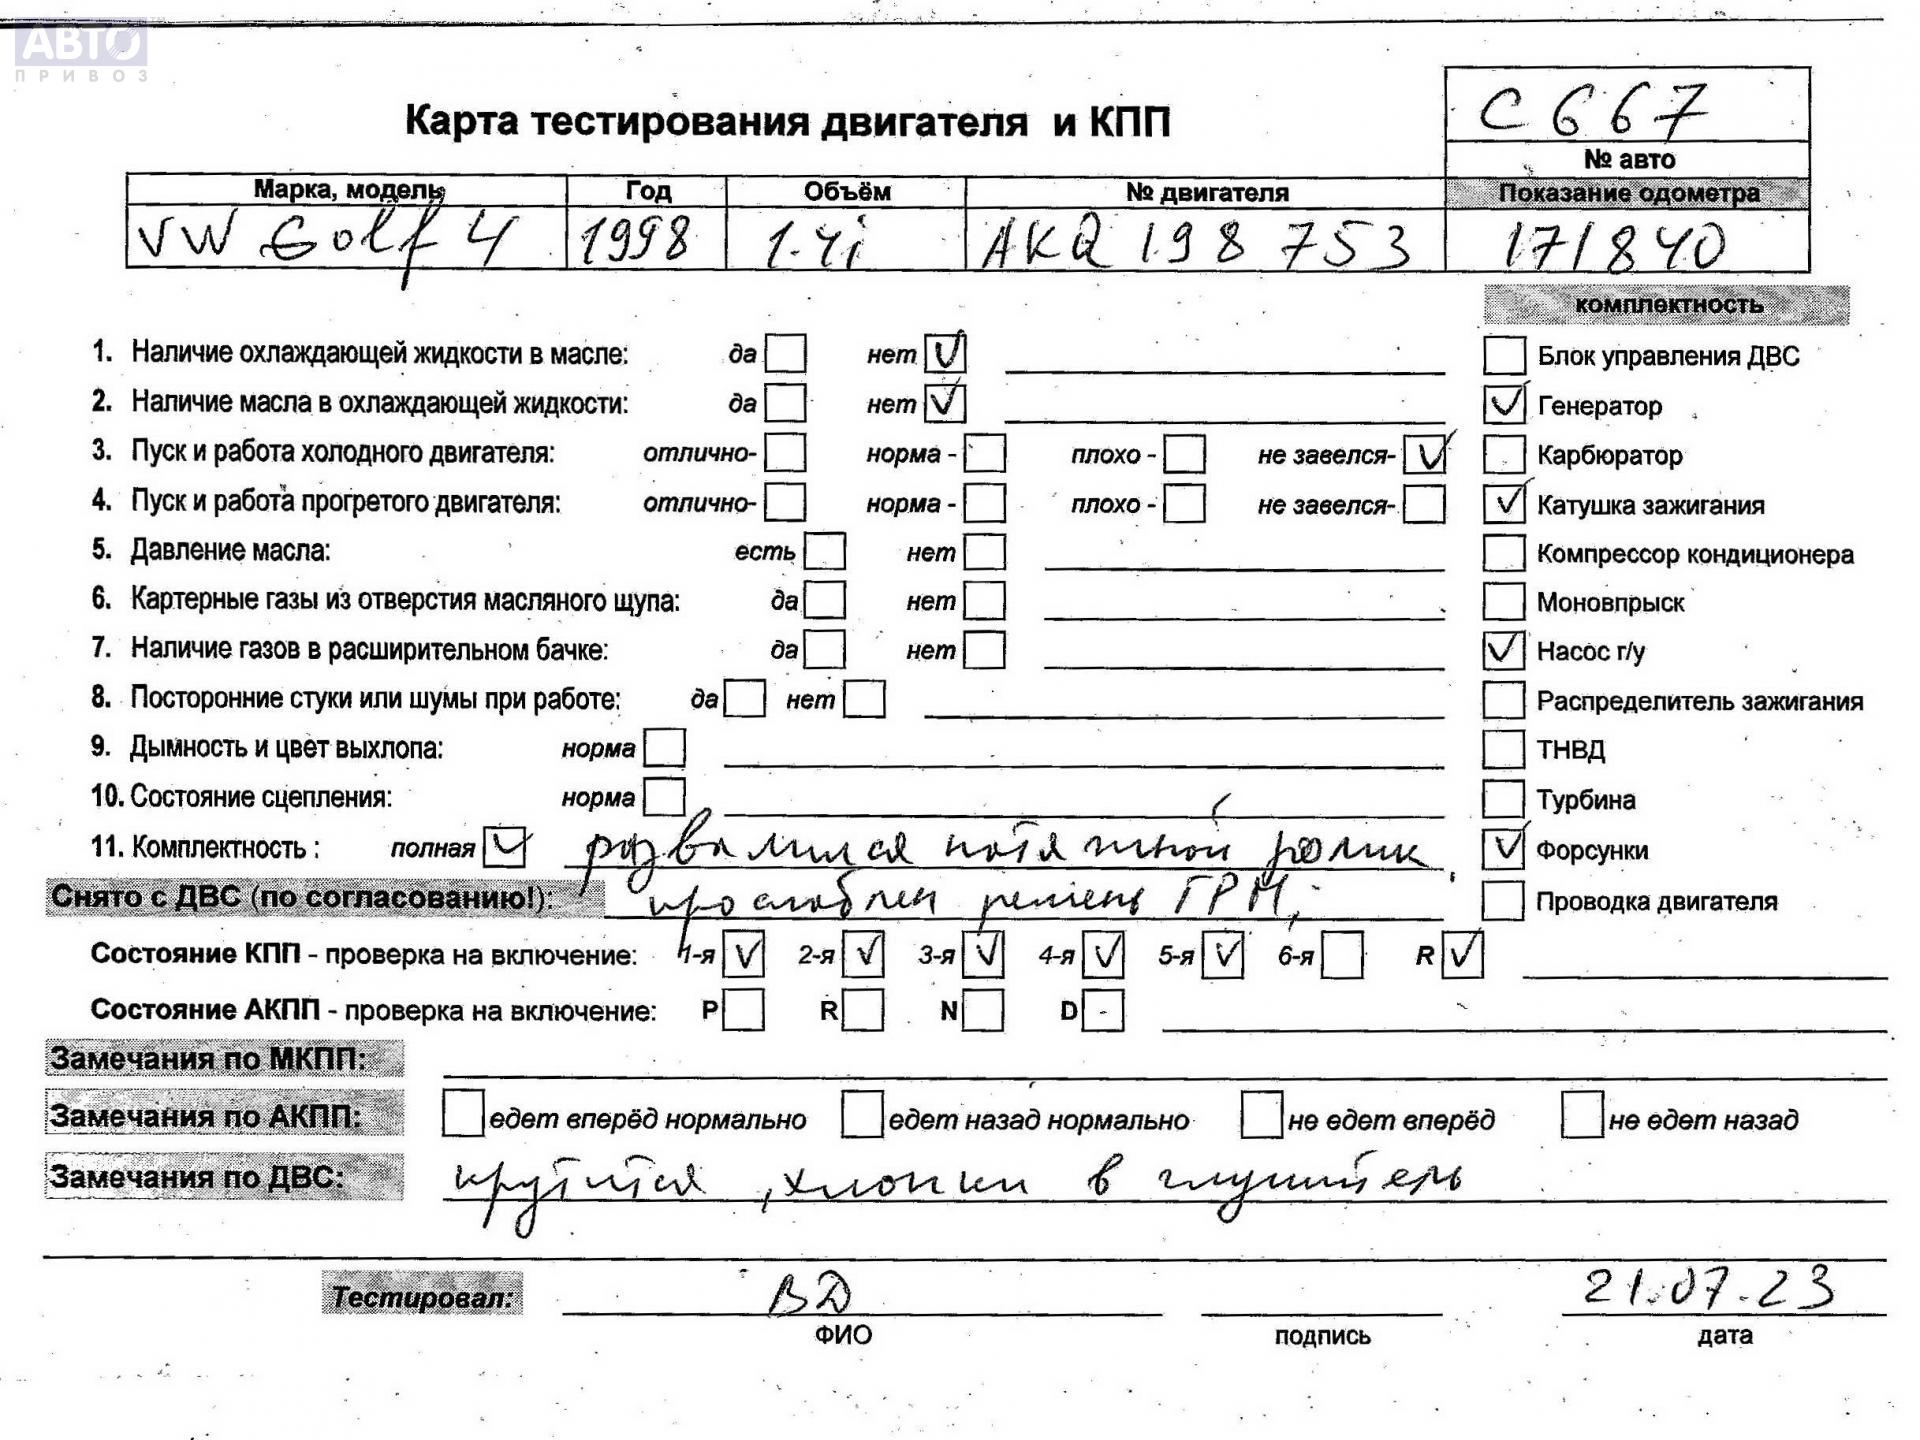 АВТО
ПРИВОЗ
С667
Карта тестирования двигателя и КПП
№ авто
Марка, модель Год Объём № двигателя Показание одометра
VW Golf 4 1998 1.4i AKQ 198 753 171840
комплектность
1. Наличие охлаждающей жидкости в масле: да нет ✓ Блок управления ДВС
2. Наличие масла в охлаждающей жидкости: да нет ✓ ✓ Генератор
3. Пуск и работа холодного двигателя: отлично- норма - плохо - не завелся- ✓ Карбюратор
4. Пуск и работа прогретого двигателя: отлично- норма - плохо - не завелся- ✓ Катушка зажигания
5. Давление масла: есть нет Компрессор кондиционера
6. Картерные газы из отверстия масляного щупа: да нет Моновпрыск
7. Наличие газов в расширительном бачке: да нет ✓ Насос г/у
8. Посторонние стуки или шумы при работе: да нет Распределитель зажигания
9. Дымность и цвет выхлопа: норма ТНВД
10. Состояние сцепления: норма Турбина
11. Комплектность : полная ✓ развалился натяжной ролик ✓ Форсунки
Снято с ДВС (по согласованию!): прослаблен ремень ГРМ, Проводка двигателя
Состояние КПП - проверка на включение: 1-я ✓ 2-я ✓ 3-я ✓ 4-я ✓ 5-я ✓ 6-я R ✓
Состояние АКПП - проверка на включение: P R N D -
Замечания по МКПП:
Замечания по АКПП: едет вперёд нормально едет назад нормально не едет вперёд не едет назад
Замечания по ДВС: крутится , хлопки в глушитель
Тестировал: ВД 21.07.23
ФИО подпись дата